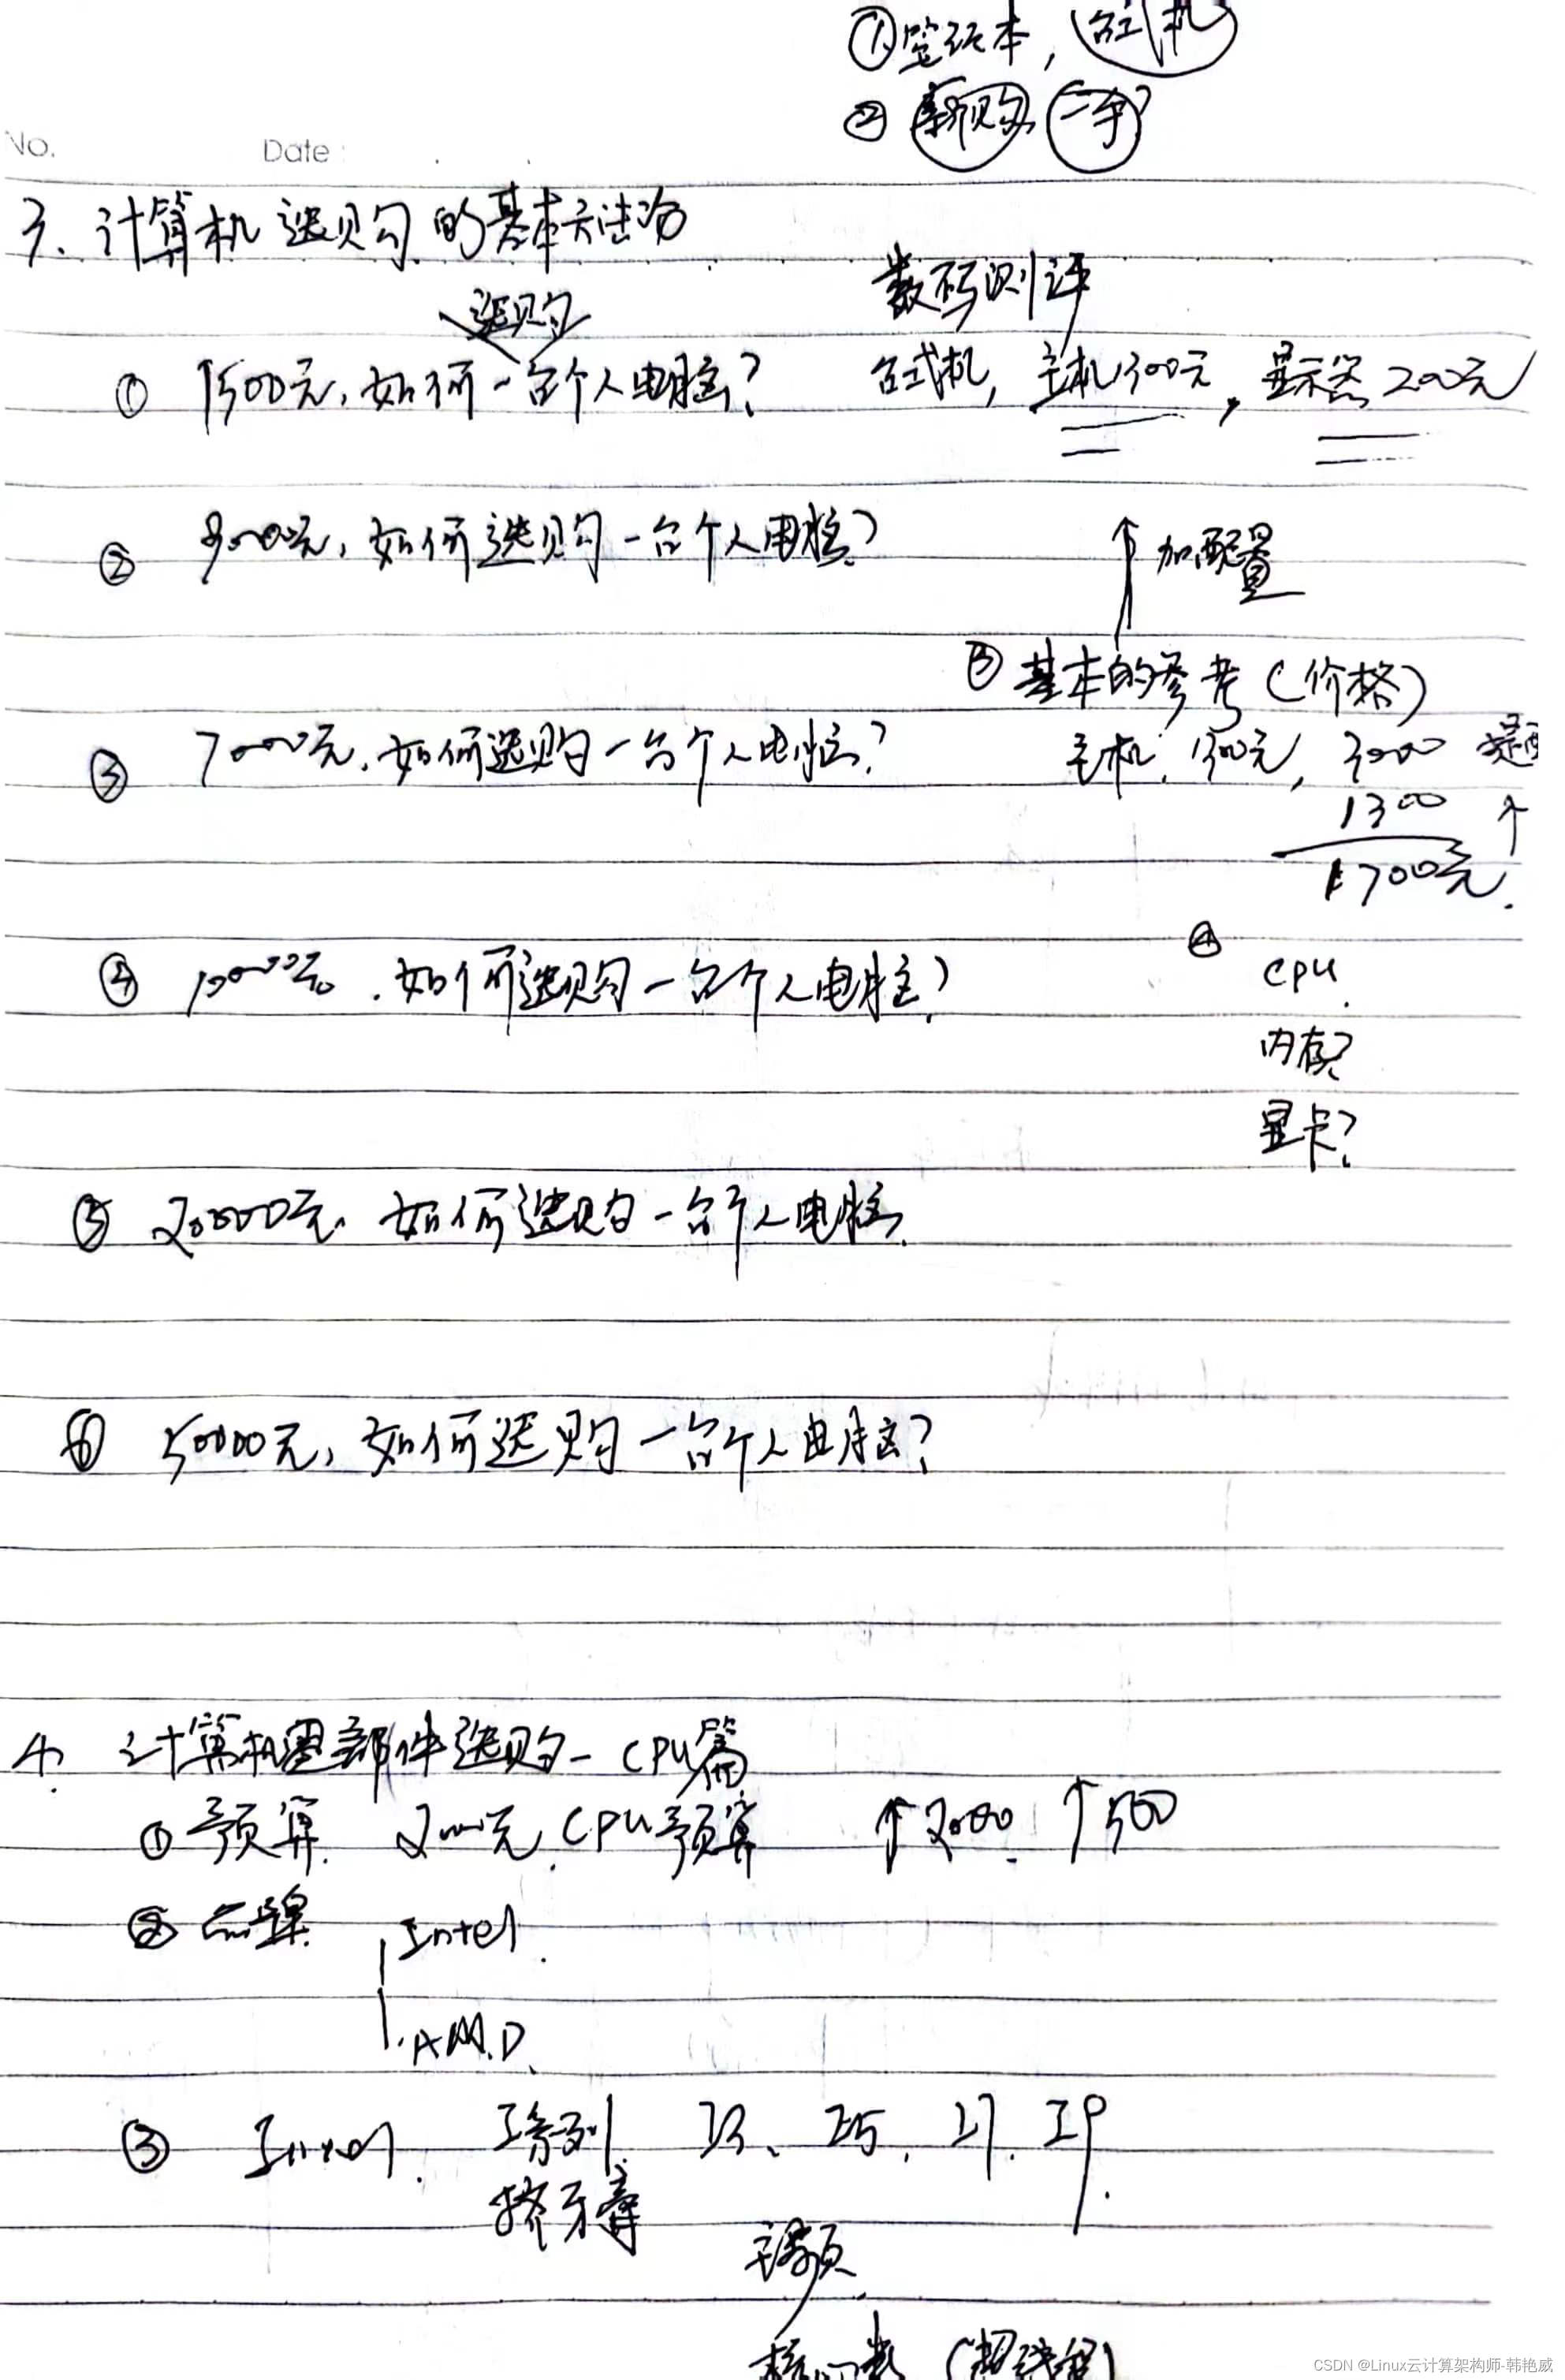 ①笔记本，台式机
② 新购 二手?
No. Date:
3. 计算机选购的基本方法论
数码测评
选购
① 1500元，如何一台个人电脑？ 台式机，主机1300元，显示器200元
② 3000元，如何选购一台个人电脑？
加配置
③ 基本的参考（价格）
③ 7000元，如何选购一台个人电脑？ 主机，1300元，3000
1300
1700元.
④ 10000元，如何选购一台个人电脑？ ④
CPU.
内存？
显卡？
⑤ 20000元，如何选购一台个人电脑.
⑥ 50000元，如何选购一台个人电脑？
4. 计算机零部件选购-CPU篇
① 预算. 2000元. CPU预算 ↑2000. ↑500
② 品牌 Intel.
AMD.
③ Intel. I系列 I3、I5，I7. I9.
挤牙膏
主频
核心数（超线程）
CSDN @Linux云计算架构师-韩艳威